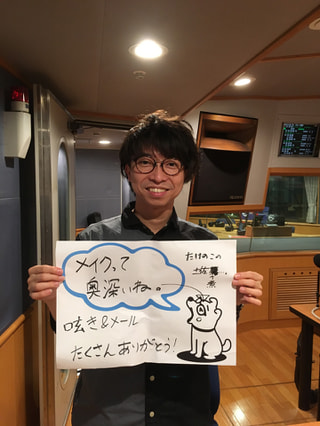 メイクって
奥深いね。
たけのこの
土佐煮
呟き&メール
たくさんありがとう!